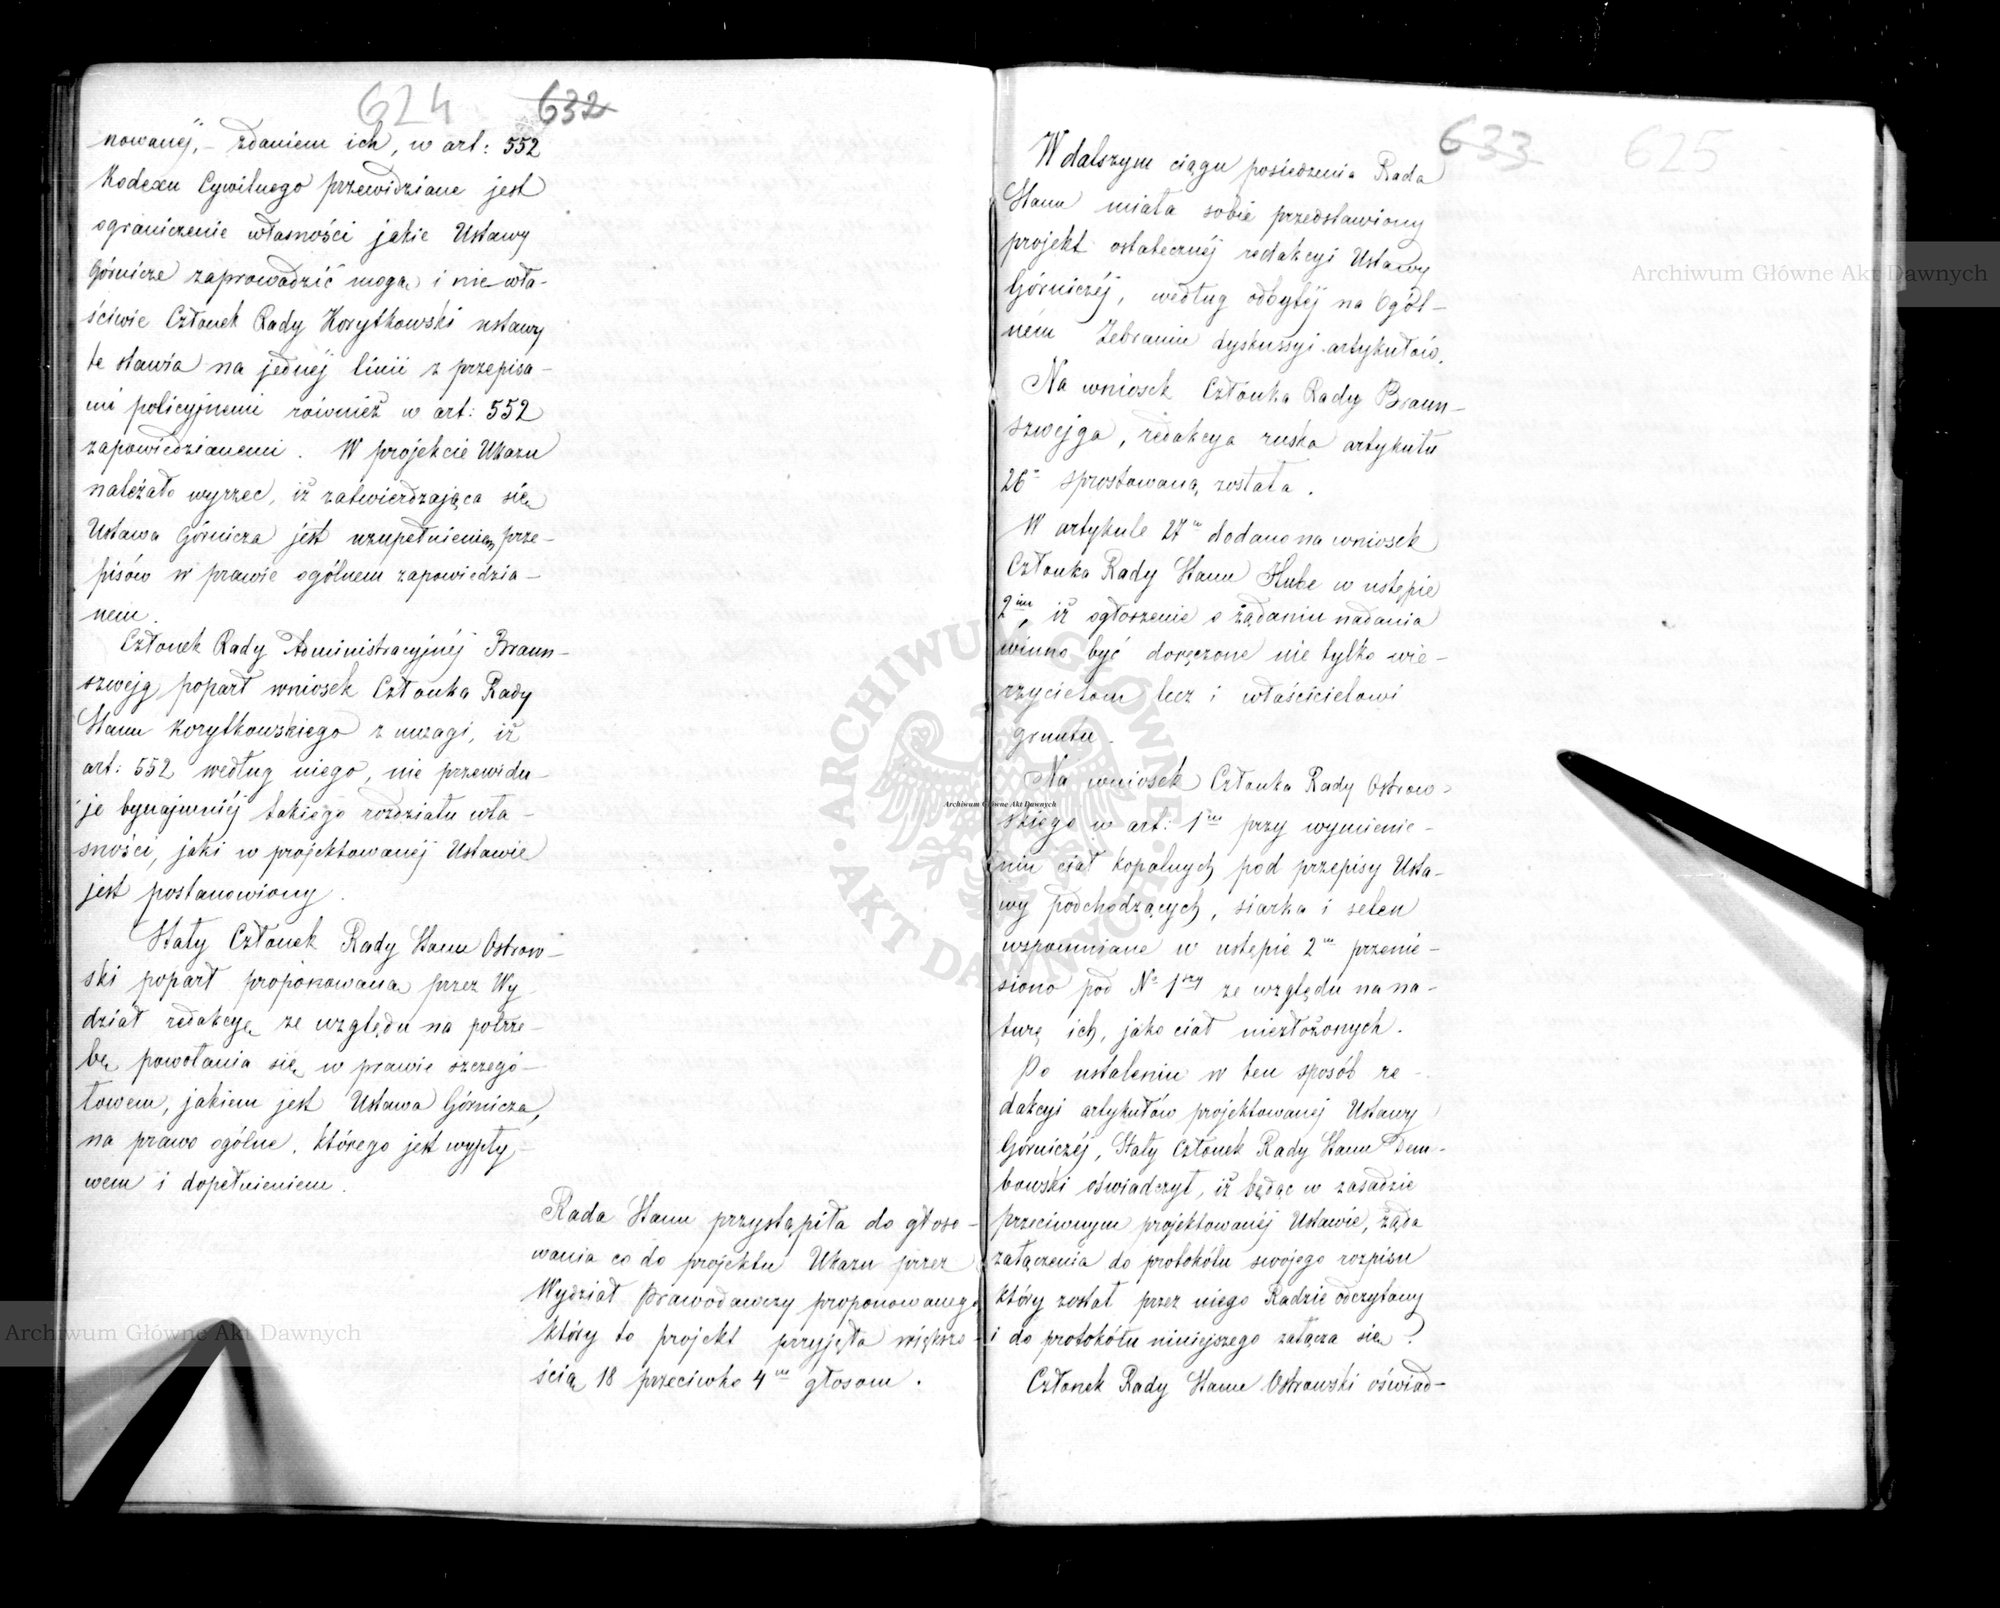 624 632
nowanej,- zdaniem ich, w art: 552
Kodexu Cywilnego przewidziane jest
ograniczenie własności jakie Ustawy
Górnicze zaprowadzić mogą i nie wła-
ściwie Członek Rady Korytkowski ustawy
te stawia na jednéj linii z przepisa-
mi policyjnemi również w art: 552
zapowiedzianemi. W projekcie Ukazu
należało wyrzec, iż zatwierdzająca się
Ustawa Górnicza jest uzupełnieniem prze-
pisów w prawie ogólnem zapowiedzia-
nem.
Członek Rady Administracyjnéj Braun-
szwejg poparł wniosek Członka Rady
Stanu Korytkowskiego z uwagi, iż
art: 552 według niego, nie przewidu-
je bynajmniéj takiego rozdziału wła-
sności, jaki w projektowanéj Ustawie
jest postanowiony.
Stały Członek Rady Stanu Ostrow-
ski poparł proponowaną przez Wy-
dział redakcyę ze względu na potrze-
bę powołania się w prawie szczegó-
łowem, jakiem jest Ustawa Górnicza,
na prawo ogólne, którego jest wypły-
wem i dopełnieniem.
Rada Stanu przystąpiła do głoso-
wania co do projektu Ukazu przez
Wydział Prawodawczy proponowanego
który to projekt przyjęła większo-
ścią 18 przeciwko 4m głosom.
633 625
W dalszym ciągu posiedzenia Rada
Stanu miała sobie przedstawiony
projekt ostatecznéj redakcyi Ustawy
Górniczéj, według odbytéj na Ogól-
ném Zebraniu dyskussyi artykułów.
Na wniosek Członka Rady Braun-
szwejga, redakcya ruska artykułu
26 sprostowaną została.
W artykule 27m dodano na wniosek
Członka Rady Stanu Hube w ustępie
2im, iż ogłoszenie o żądaniu nadania
winno być doręczone nie tylko wie-
rzycielom lecz i właścicielowi
gruntu.
Na wniosek Członka Rady Ostrow-
skiego w art: 1m przy wymienie-
niu ciał kopalnych pod przepisy Usta-
wy podchodzących, siarka i selen
wzpomniane w ustępie 2m przenie-
siono pod No 1szy ze względu na na-
turę ich, jako ciał niezłożonych.
Po ustaleniu w ten sposób re-
dakcyi artykułów projektowanej Ustawy
Górniczéj, Stały Członek Rady Stanu Dem-
bowski oświadczył, iż będąc w zasadzie
przeciwnym projektowanéj Ustawie, żąda
załączenia do protokółu swojego rozpisu
który został przez niego Radzie odczytany
i do protokółu niniejszego załącza się?
Członek Rady Stanu Ostrowski oświad-
Archiwum Główne Akt Dawnych
Archiwum Główne Akt Dawnych
Archiwum Główne Akt Dawnych
ARCHIWUM GŁÓWNE AKT DAWNYCH